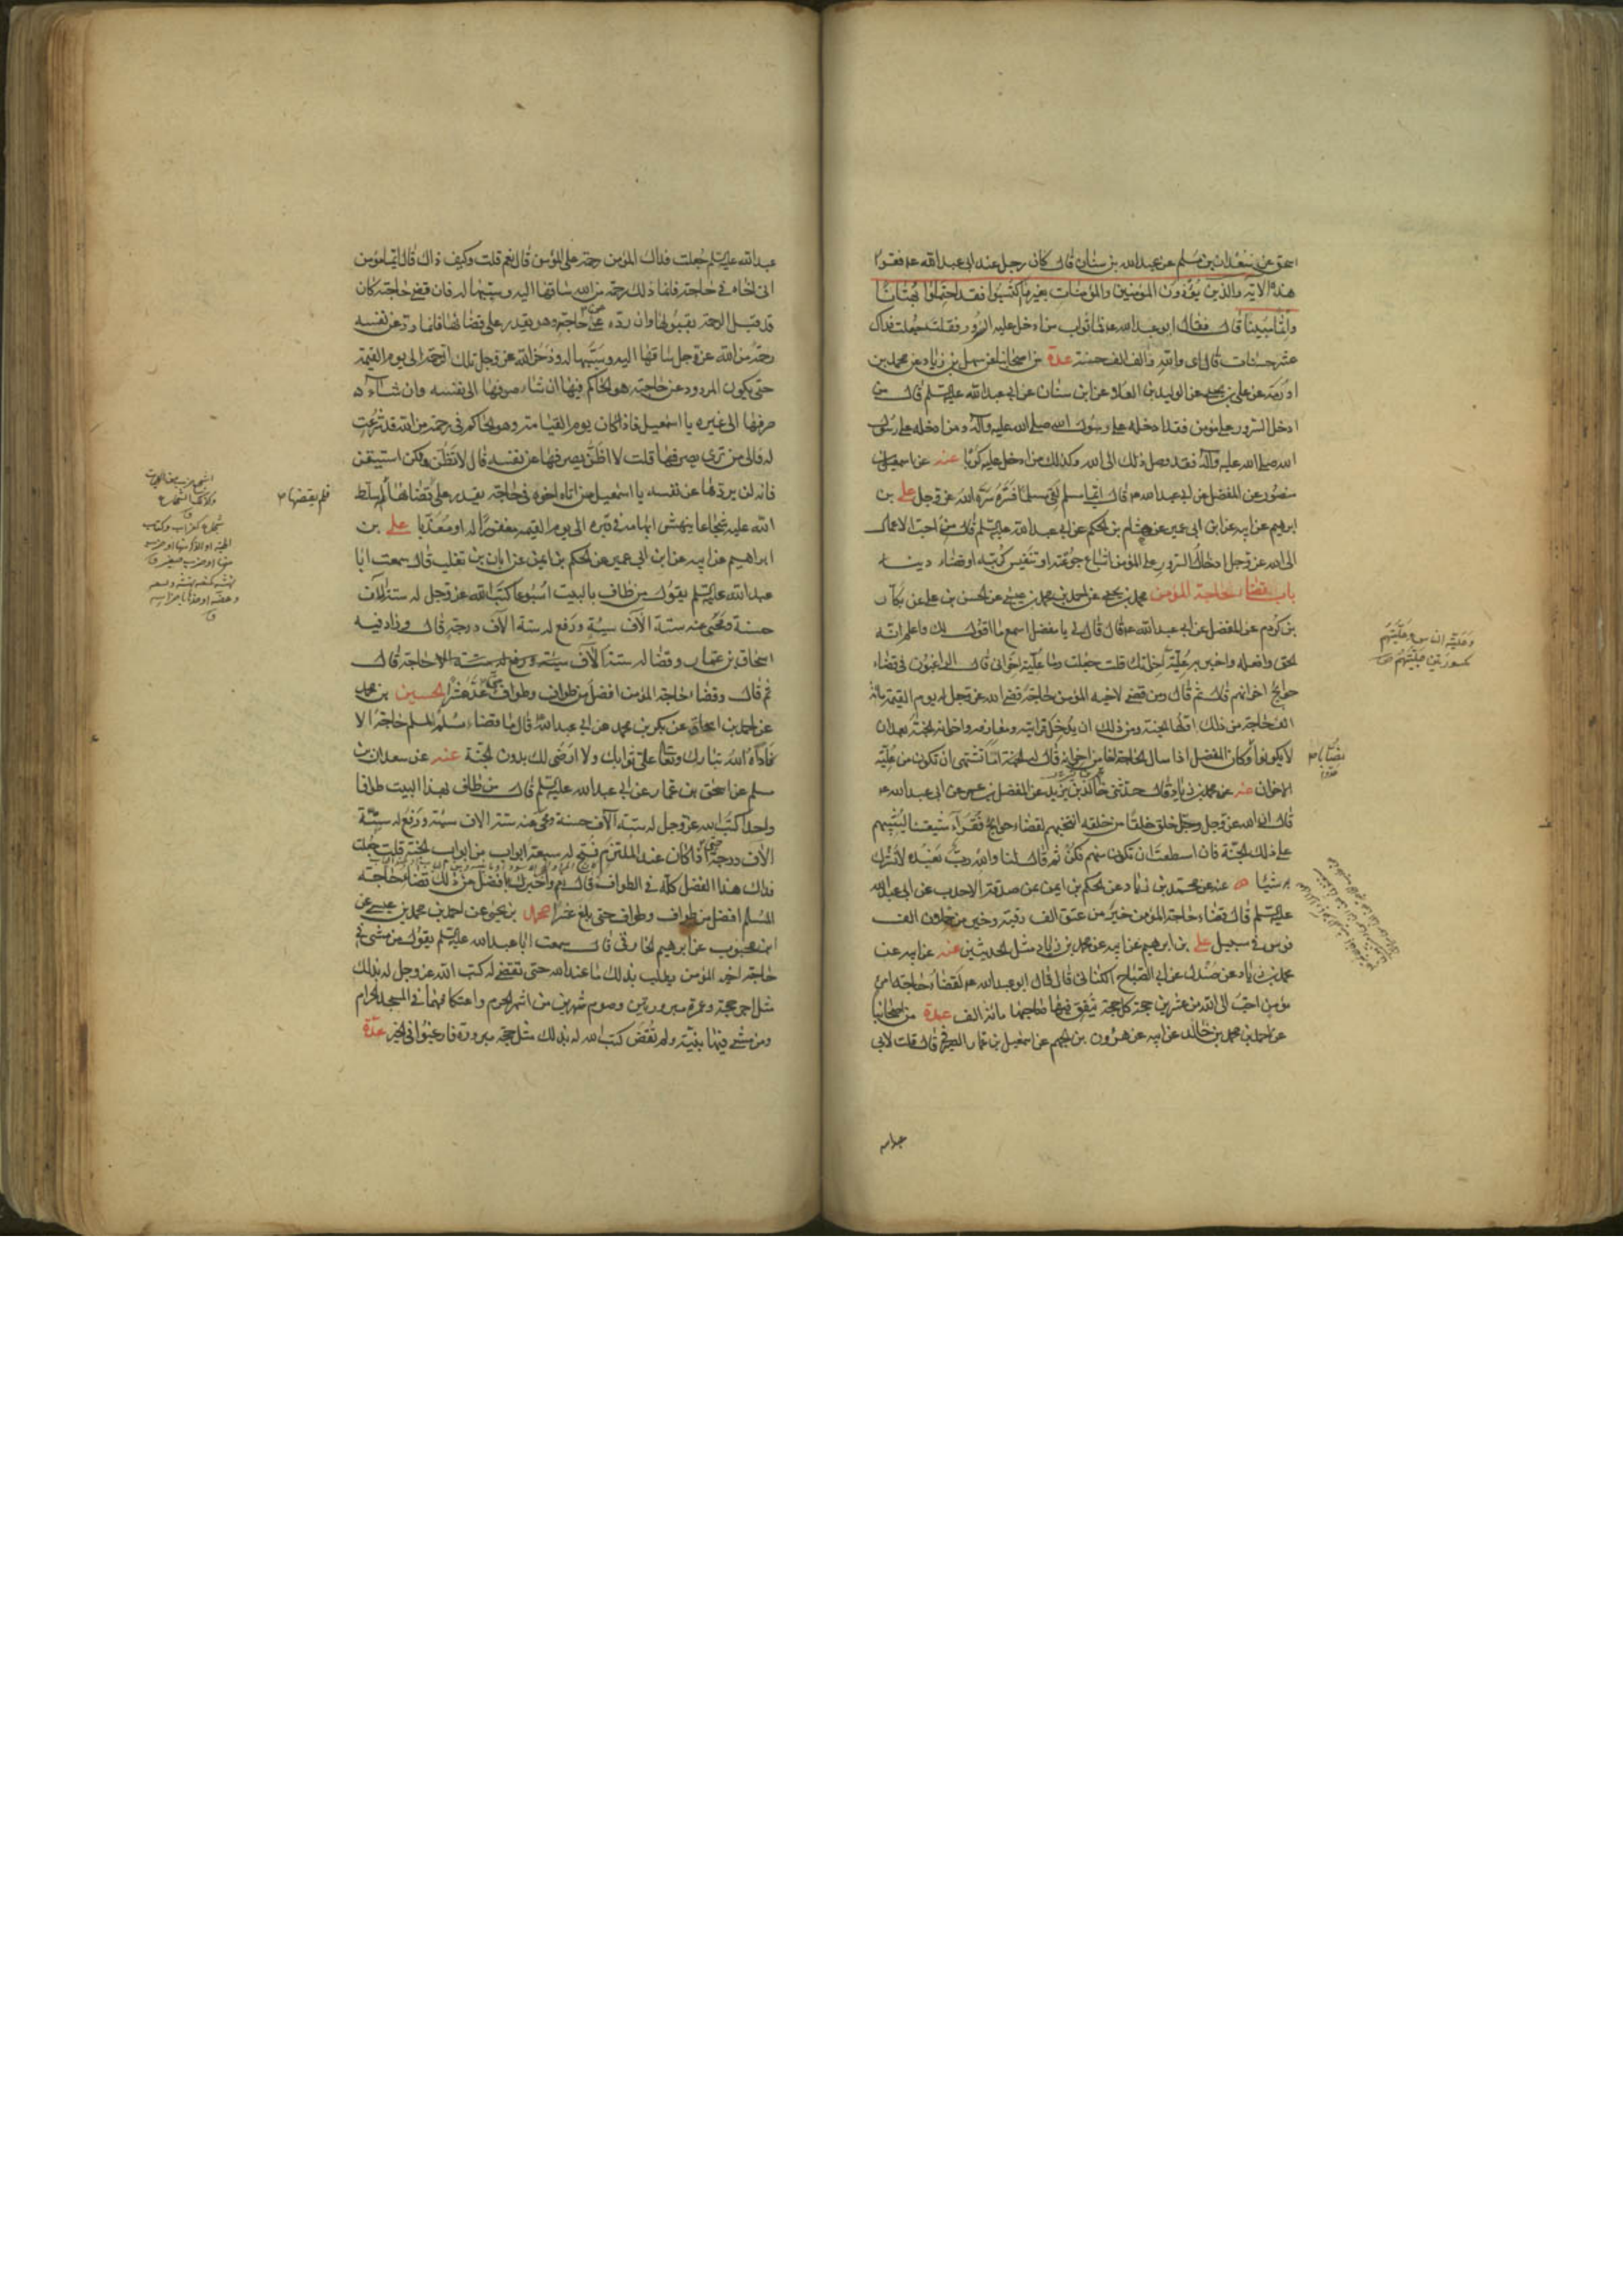 اسحق عن سعدان بن مسلم عن عبدالله بن سنان قال كان رجل عند ابى عبدالله عه فقرا
هذه الاية والذين يؤذون المؤمنين والمؤمنات بغير ما اكتسبوا فقد احتملوا بهتانا
واثما مبينا قال فقال ابو عبدالله عه فما ثواب من ادخل عليه السرور فقلت جعلت فداك
عشر حسنات قال اى والله والف الف حسنة عدة من اصحابنا عن سهل بن زياد عن محمد بن
اورمة عن على بن يحيى عن الوليد بن العلا عن ابن سنان عن ابى عبدالله عليه السلم قال من
ادخل السرور على مؤمن فقد ادخله على رسول الله صلى الله عليه وآله ومن ادخله على رسول
الله صلى الله عليه وآله فقد وصل ذلك الى الله وكذلك من ادخل عليه كربا عنه عن اسمعيل بن
منصور عن المفضل عن ابى عبدالله عه قال ايما مسلم لقى مسلما فسره سره الله عز وجل على بن
ابرهيم عن ابيه عن ابن ابى عمير عن هشام بن الحكم عن ابى عبدالله عليه السلم قال من احب الاعمال
الى الله عز وجل ادخال السرور على المؤمن اشباع جوعته او تنفيس كربته او قضاء دينه
باب قضاء حاجة المؤمن محمد بن يحيى عن احمد بن محمد بن عيسى عن الحسن بن على عن بكار
بن كردم عن المفضل عن ابى عبدالله عه قال قال لى يا مفضل اسمع ما اقول لك واعلم انه
الحق وافعله واخبر به علية اخوانك قلت جعلت فداك وما علية اخوانى قال الراغبون فى قضاء
حوائج اخوانهم قال ثم قال ومن قضى لاخيه المؤمن حاجة قضى الله عز وجل له يوم القيمة مائة
الف حاجة من ذلك اولها الجنة ومن ذلك ان يدخل قرابته ومعارفه واخوانه الجنة بعد ان
لا يكونوا نصابا وكان المفضل اذا سال الحاجة اخا من اخوانه قال له اما تشتهى ان تكون من علية
الاخوان عنه عن محمد بن زياد قال حدثنى خالد بن يزيد عن المفضل بن عمر عن ابى عبدالله عه
قال ان الله عز وجل خلق خلقا من خلقه انتخبهم لقضاء حوائج فقراء شيعتنا ليثيبهم
على ذلك الجنة فان استطعت ان تكون منهم فكن ثم قال لنا والله رب نعبده لا نشرك
به شيئا عنه عن محمد بن زياد عن الحكم بن ايمن عن صدقة الاحدب عن ابى عبدالله
عليه السلم قال قضاء حاجة المؤمن خير من عتق الف رقبة وخير من حملان الف
فرس فى سبيل الله على بن ابرهيم عن ابيه عن محمد بن زياد مثل الحديثين عنه عن ابيه عن
محمد بن زياد عن صندل عن ابى الصباح الكنانى قال قال ابو عبدالله عه لقضاء حاجة امرئ
مؤمن احب الى الله من عشرين حجة كل حجة ينفق فيها صاحبها مائة الف عدة من اصحابنا
عن احمد بن محمد بن خالد عن ابيه عن هرون بن الجهم عن اسمعيل بن عمار الصيرفى قال قلت لابى
نصابا
عبدالله عليه السلم جعلت فداك المؤمن رحمة على المؤمن قال نعم قلت وكيف ذاك قال ايما مؤمن
اتى اخاه فى حاجة فانما ذلك رحمة من الله ساقها اليه وسببها له فان قضى حاجته كان
قد قبل الرحمة بقبولها وان رده عن حاجته وهو يقدر على قضائها فانما رد عن نفسه
رحمة من الله عز وجل ساقها اليه وسببها له وذخر الله عز وجل تلك الرحمة الى يوم القيمة
حتى يكون المردود عن حاجته هو الحاكم فيها ان شاء صرفها الى نفسه وان شاء
صرفها الى غيره يا اسمعيل فاذا كان يوم القيامة وهو الحاكم فى رحمة من الله قد شرعت
له فالى من ترى يصرفها قلت لا اظن يصرفها عن نفسه قال لا تظن ولكن استيقن
فانه لن يردها عن نفسه يا اسمعيل من اتاه اخوه فى حاجة يقدر على قضائها سلط
الله عليه شجاعا ينهش ابهامه فى قبره الى يوم القيمة مغفورا له او معذبا على بن
ابراهيم عن ابيه عن ابن ابى عمير عن الحكم بن ايمن عن ابان بن تغلب قال سمعت ابا
عبدالله عليه السلم يقول من طاف بالبيت اسبوعا كتب الله عز وجل له ستة آلاف
حسنة ومحى عنه ستة آلاف سيئة ورفع له ستة آلاف درجة قال وزاد فيه
اسحاق بن عمار وقضا له ستة آلاف حاجة قال
ثم قال وقضاء حاجة المؤمن افضل من طواف وطواف حتى عد عشرا الحسين بن محمد
عن احمد بن اسحاق عن بكر بن محمد عن ابى عبدالله قال ما قضا مسلم لمسلم حاجة الا
ناداه الله تبارك وتعالى على ثوابك ولا ارضى لك بدون الجنة عنه عن سعدان بن
مسلم عن اسحق بن عمار عن ابى عبدالله عليه السلم قال من طاف بهذا البيت طوافا
واحدا كتب الله عز وجل له ستة آلاف حسنة ومحى عنه ستة آلاف سيئة ورفع له ستة
آلاف درجة حتى اذا كان عند الملتزم فتح له سبعة ابواب من ابواب الجنة قلت جعلت
فداك هذا الفضل كله فى الطواف قال نعم واخبرك بافضل من ذلك قضاء حاجة
المسلم افضل من طواف وطواف حتى بلغ عشرا محمد بن يحيى عن احمد بن محمد بن عيسى عن
ابن محبوب عن ابرهيم الخارقى قال سمعت ابا عبدالله عليه السلم يقول من مشى فى
حاجة اخيه المؤمن يطلب بذلك ما عند الله حتى تقضى له كتب الله عز وجل له بذلك
مثل اجر حجة وعمرة مبرورتين وصوم شهرين من اشهر الحرم واعتكافهما فى المسجد الحرام
ومن مشى فيها بنية ولم تقض كتب الله له بذلك مثل حجة مبرورة فارغبوا فى الخير عدة
فلم يقضها